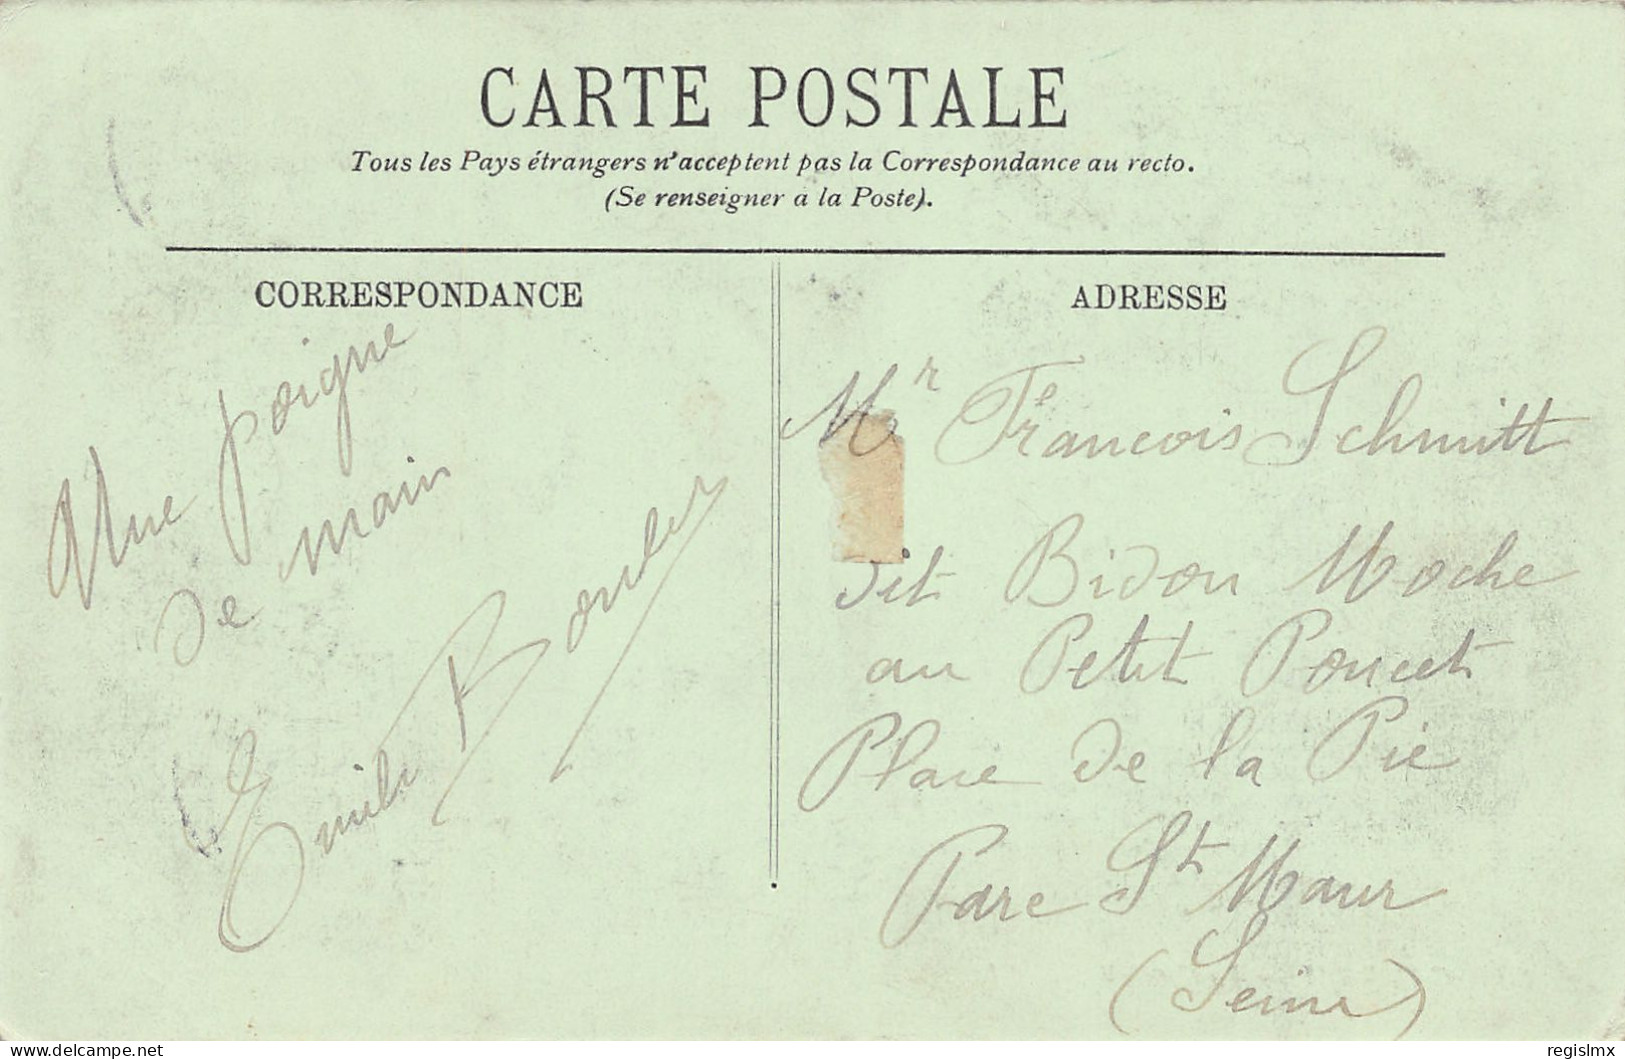 CARTE POSTALE
Tous les Pays étrangers n'acceptent pas la Correspondance au recto.
(Se renseigner a la Poste).
CORRESPONDANCE
Une poigne
de main
Emile
ADRESSE
Mr François Schmitt
dit Bidon Moche
au Petit Poucet
Place de la Pie
Parc St Maur
(Seine)
www.delcampe.net
regislmx